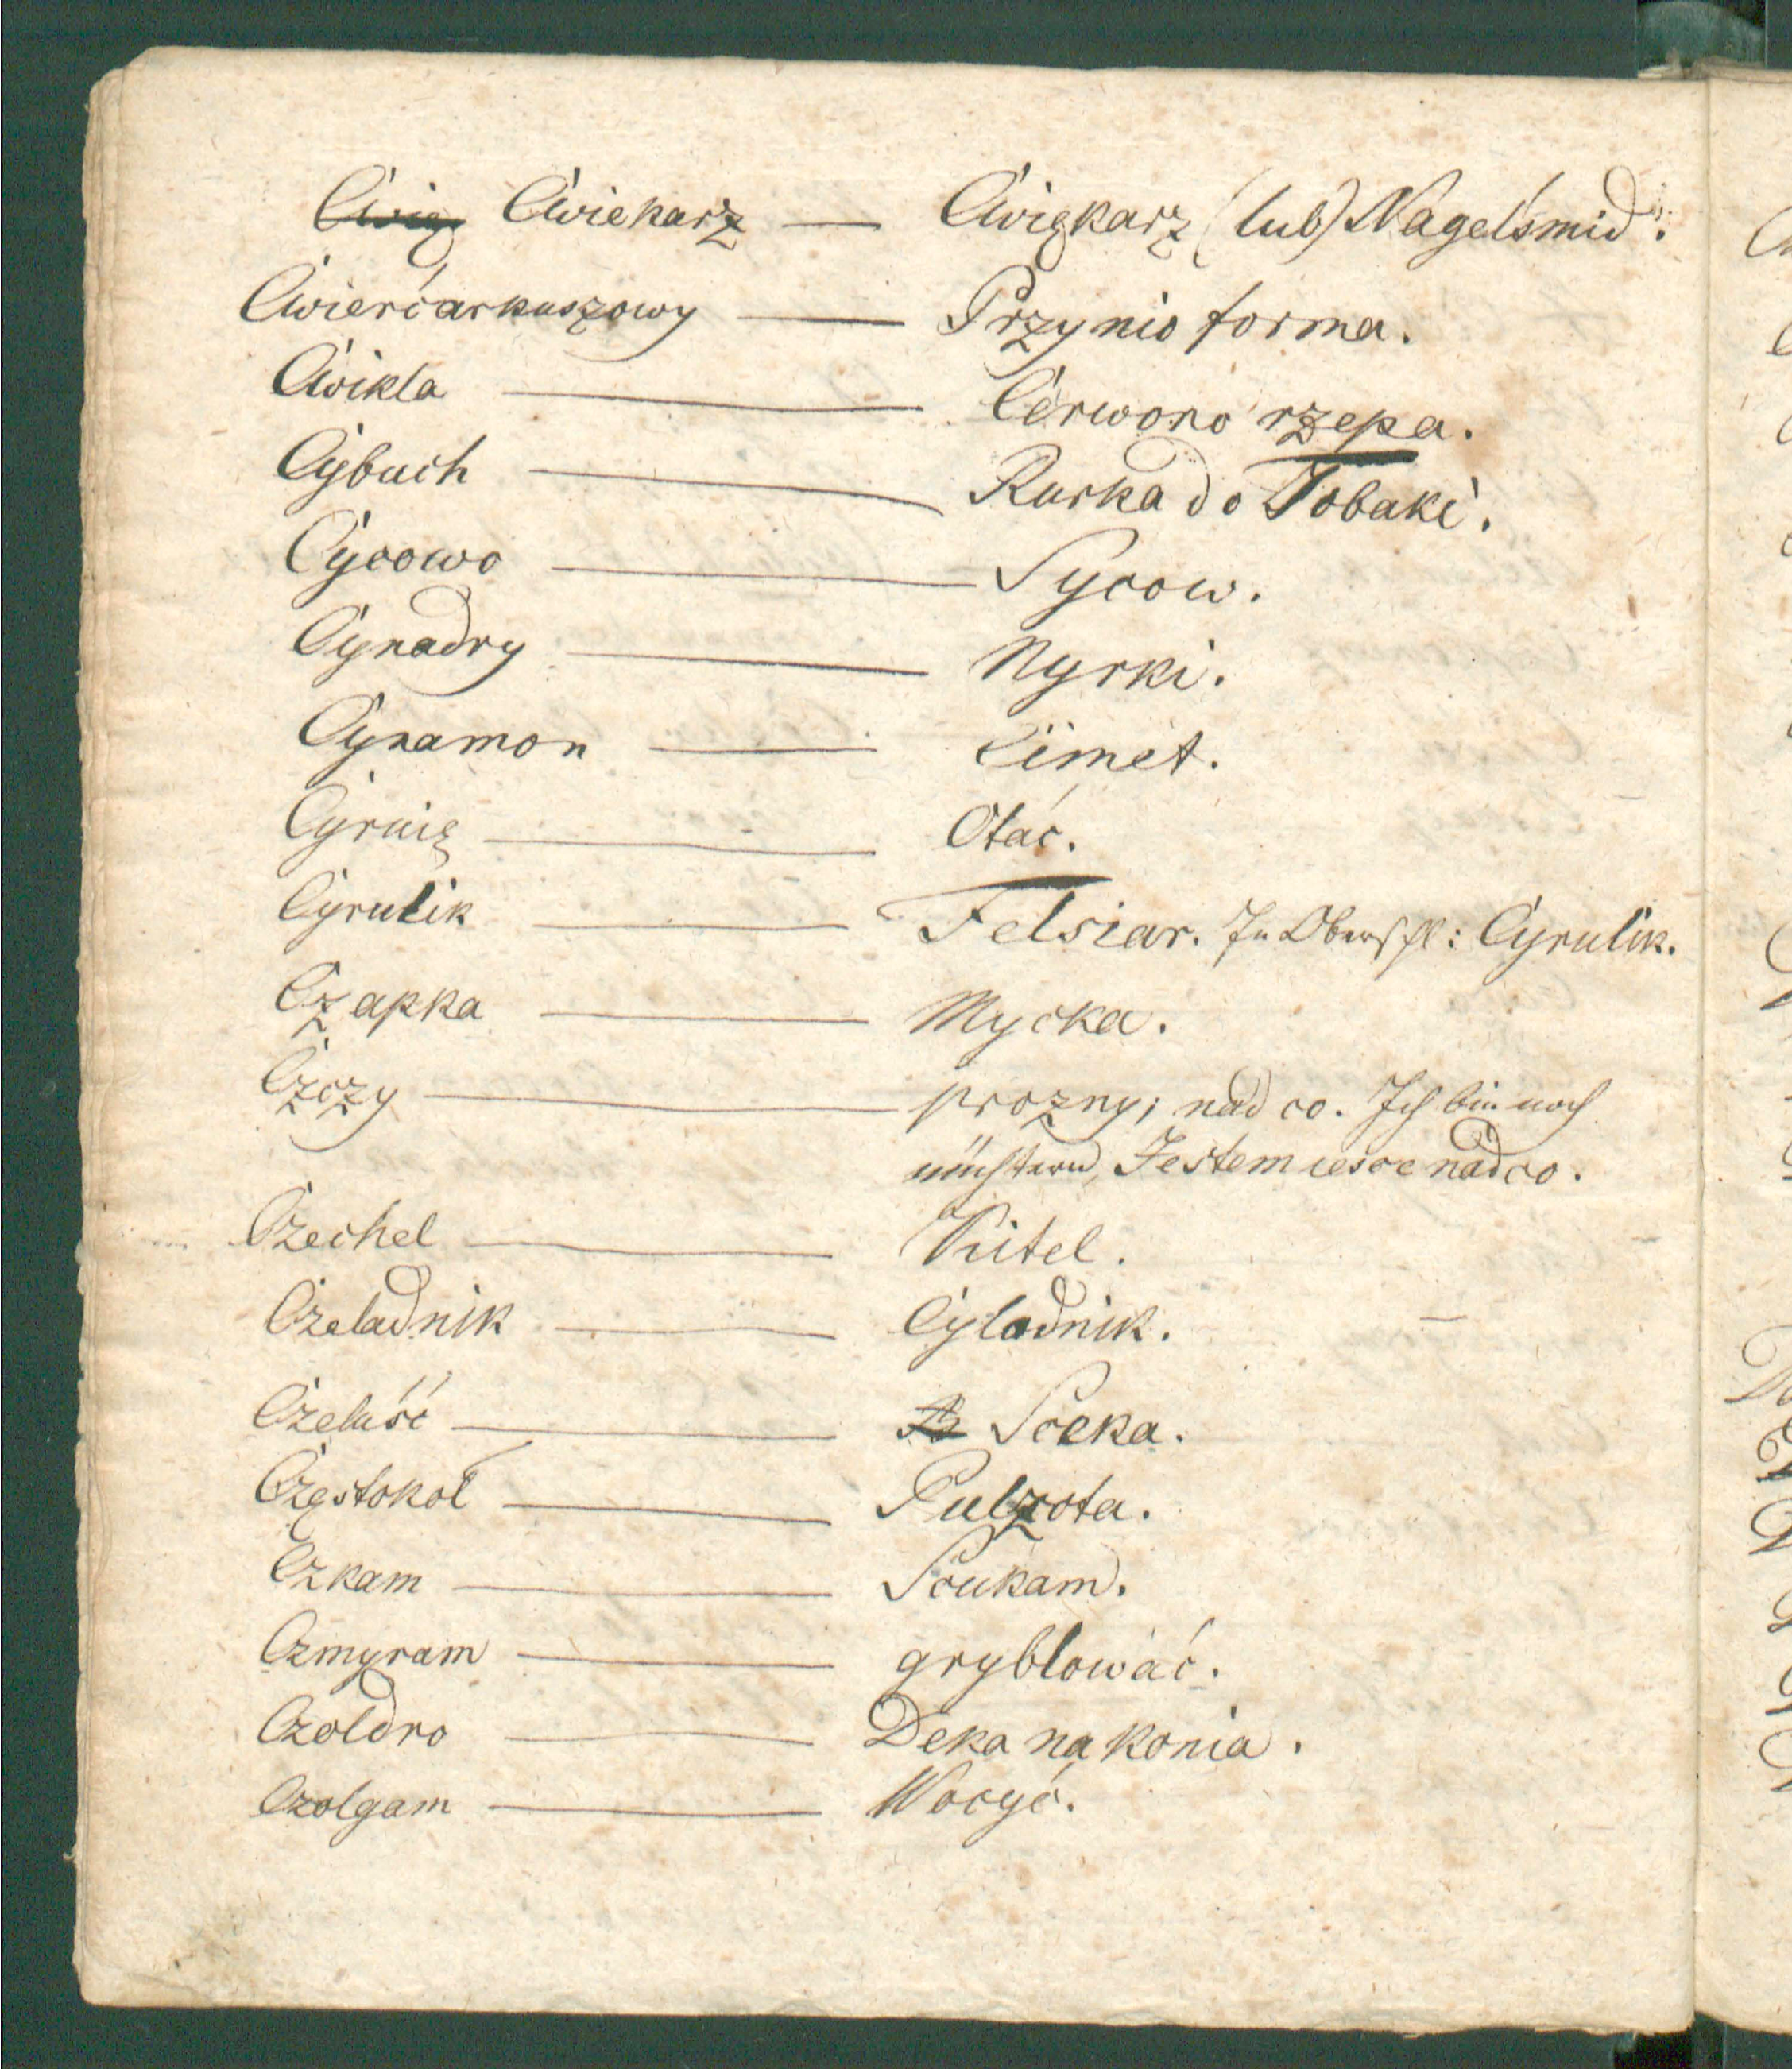 Cwię Cwiekarz — Cwiękarz (lub) Nagelśmid.
Cwierćarkuszowy — Przynio forma.
Cwikla — Cerwono rzepa.
Cybuch — Rurka do Tobaki.
Cycowo — Sycow.
Cynadry — Nyrki.
Cynamon — Cimet.
Cyrnię — Otać.
Cyrulik — Felsiar. In Oberschl: Cyrulik.
Czapka — Mycka.
Czczy — prozny; nad co. Ich bin noch
nüchtern, Jestem iesce nadco.
Czechel — Kitel.
Czeladnik — Cyladnik.
Czeluść — Sceka.
Częstokoł — Pulzota.
Czkam — Scukam.
Czmyram — gryblować.
Czoldro — Deka na konia.
Czolgam — Wocyć.